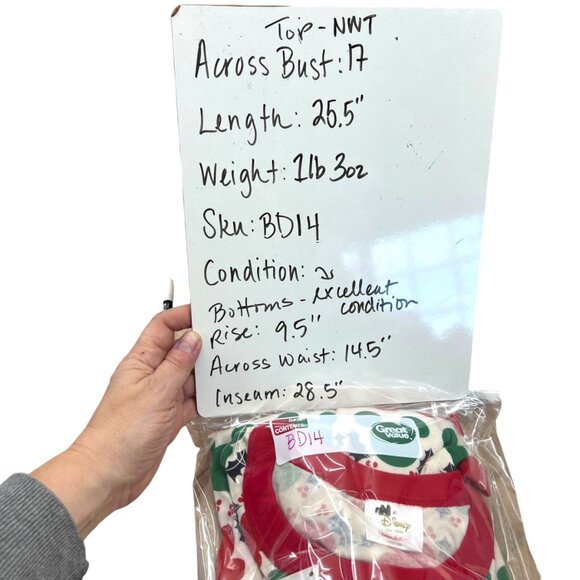 Top - NWT
Across Bust: 17
Length: 25.5"
Weight: 1lb 3oz
Sku: BD14
Condition:
Bottoms - excellent
condition
Rise: 9.5"
Across Waist: 14.5"
Inseam: 28.5"
Great
Value
BD14
Disney